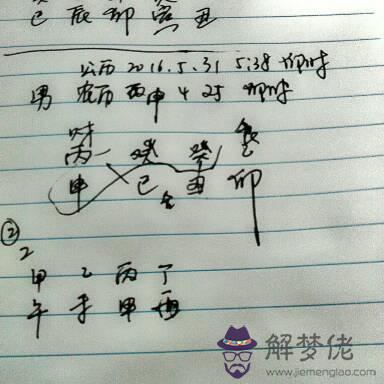 巳 辰 卯 寅 丑
公历 2016.5.31 5:38 卯时
男 农历 丙申 4 25 卯时
丙 癸 癸
申 巳 丑 卯
②
2
甲 乙 丙 丁
午 申
解梦佬
www.jiemenglao.com